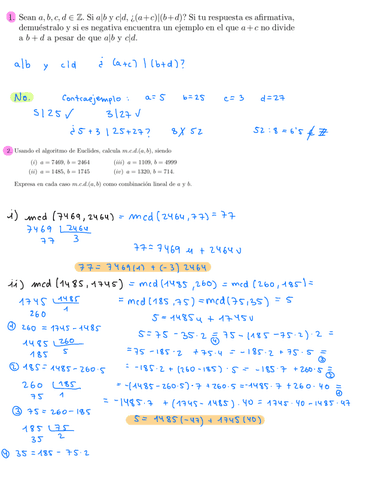 1. Sean a, b, c, d ∈ ℤ. Si a|b y c|d, ¿(a+c)|(b+d)? Si tu respuesta es afirmativa,
demuéstralo y si es negativa encuentra un ejemplo en el que a + c no divide
a b + d a pesar de que a|b y c|d.
a|b y c|d ¿ (a+c) | (b+d)?
No. Contraejemplo: a=5 b=25 c=3 d=27
5|25 ✓ 3|27 ✓
¿5+3 | 25+27? 8∤52 52:8=6'5 ∉ ℤ
2. Usando el algoritmo de Euclides, calcula m.c.d.(a, b), siendo
(i) a = 7469, b = 2464 (iii) a = 1109, b = 4999
(ii) a = 1485, b = 1745 (iv) a = 1320, b = 714.
Expresa en cada caso m.c.d.(a, b) como combinación lineal de a y b.
i) mcd (7469, 2464) = mcd (2464, 77) = 77
7469 | 2464
77 3
77 = 7469 u + 2464 v
77 = 7469 (1) + (-3) 2464
ii) mcd (1485, 1745) = mcd (1485, 260) = mcd (260, 185) =
1745 | 1485 = mcd (185, 75) = mcd (75, 35) = 5
260 1
5 = 1485u + 1745v
① 260 = 1745 - 1485
5 = 75 - 35·2 = 75 - (185 - 75·2)·2 =
④
1485 | 260
185 5
= 75 - 185·2 + 75·4 = -185·2 + 75·5 =
③
② 185 = 1485 - 260·5
= -185·2 + (260 - 185)·5 = -185·7 + 260·5 =
②
260 | 185
75 1
= -(1485 - 260·5)·7 + 260·5 = -1485·7 + 260·40 =
①
③ 75 = 260 - 185
= -1485·7 + (1745 - 1485)·40 = 1745·40 - 1485·47
185 | 75
35 2
5 = 1485 (-47) + 1745 (40)
④ 35 = 185 - 75·2